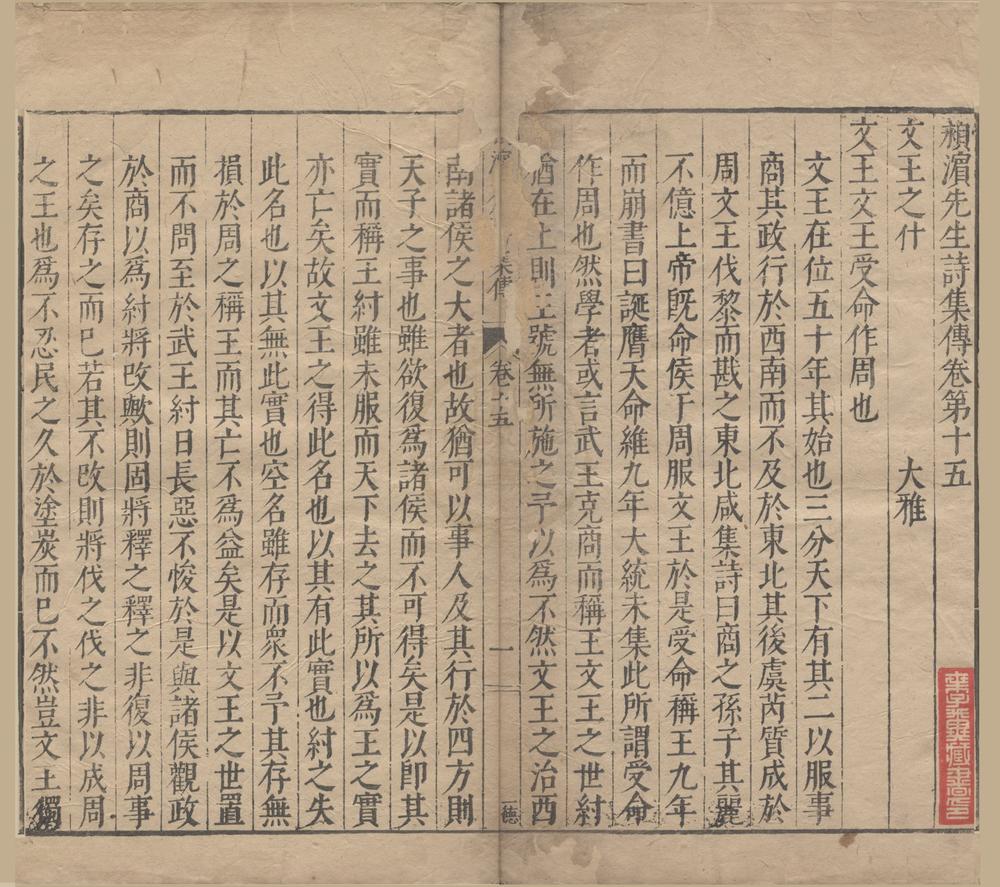 潁濱先生詩集傳卷第十五
文王之什　大雅
文王文王受命作周也
文王在位五十年其始也三分天下有其二以服事
商其政行於西南而不及於東北其後虞芮質成於
周文王伐黎而戡之東北咸集詩曰商之孫子其麗
不億上帝既命侯于周服文王於是受命稱王九年
而崩書曰誕膺天命維九年大統未集此所謂受命
作周也然學者或言武王克商而稱王文王之世紂
猶在上則王號無所施之予以為不然文王之治西
卷十五
一
德
南諸侯之大者也故猶可以事人及其行於四方則
天子之事也雖欲復為諸侯而不可得矣是以即其
實而稱王紂雖未服而天下去之其所以為王之實
亦亡矣故文王之得此名也以其有此實也紂之失
此名也以其無此實也空名雖存而衆不予其存無
損於周之稱王而其亡不為益矣是以文王之世置
而不問至於武王紂日長惡不悛於是與諸侯觀政
於商以為紂將改歟則固將釋之釋之非復以周事
之矣存之而已若其不改則將伐之伐之非以成周
之王也爲不忍民之久於塗炭而已不然豈文王獨